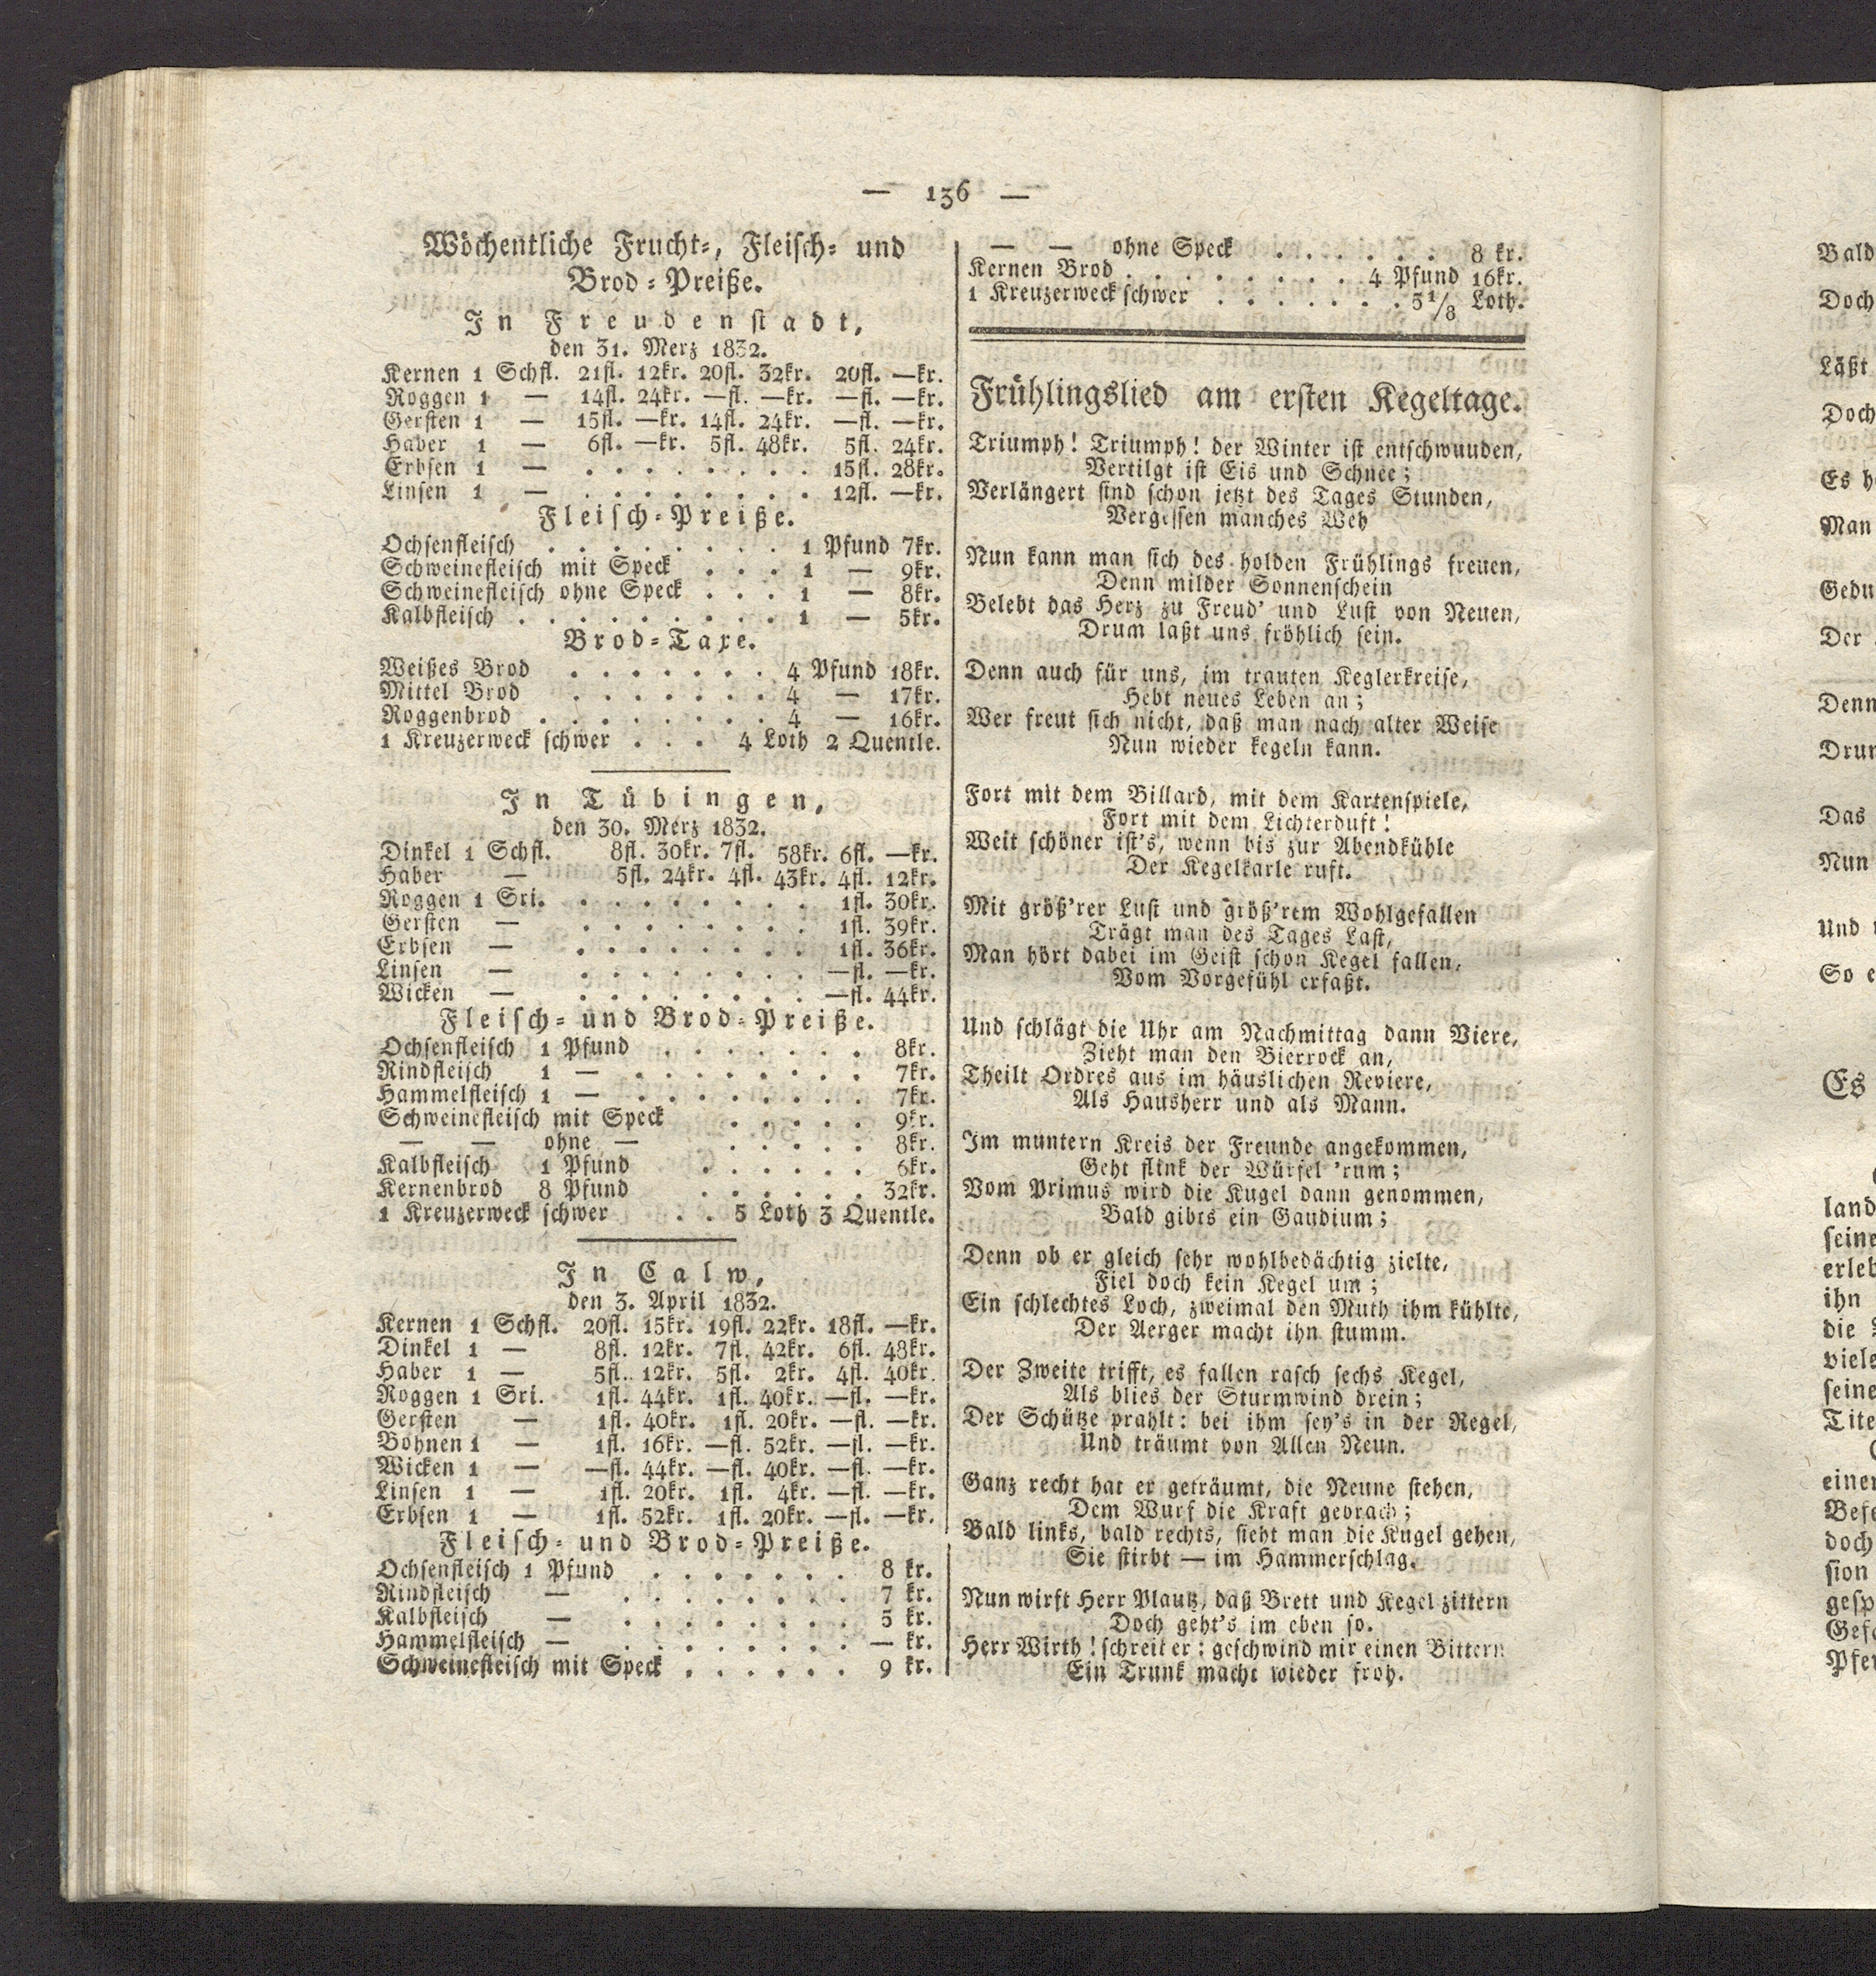 — 136 —
Wöchentliche Frucht-, Fleisch- und
Brod-Preiße.
In Freudenstadt,
den 31. Merz 1832.
Kernen 1 Schfl. 21fl. 12kr. 20fl. 32kr. 20fl. —kr.
Roggen 1 — 14fl. 24kr. —fl. —kr. —fl. —kr.
Gersten 1 — 15fl. —kr. 14fl. 24kr. —fl. —kr.
Haber 1 — 6fl. —kr. 5fl. 48kr. 5fl. 24kr.
Erbsen 1 — . . . . . . . . 15fl. 28kr.
Linsen 1 — . . . . . . . . 12fl. —kr.
Fleisch-Preiße.
Ochsenfleisch . . . . . . . . 1 Pfund 7kr.
Schweinefleisch mit Speck . . . 1 — 9kr.
Schweinefleisch ohne Speck . . . 1 — 8kr.
Kalbfleisch . . . . . . . . . 1 — 5kr.
Brod-Taxe.
Weißes Brod . . . . . . . 4 Pfund 18kr.
Mittel Brod . . . . . . . 4 — 17kr.
Roggenbrod . . . . . . . . 4 — 16kr.
1 Kreuzerweck schwer . . . 4 Loth 2 Quentle.
In Tübingen,
den 30. Merz 1832.
Dinkel 1 Schfl. 8fl. 30kr. 7fl. 58kr. 6fl. —kr.
Haber — 5fl. 24kr. 4fl. 43kr. 4fl. 12kr.
Roggen 1 Sri. . . . . . . . . 1fl. 30kr.
Gersten — . . . . . . . . 1fl. 39kr.
Erbsen — . . . . . . . . 1fl. 36kr.
Linsen — . . . . . . . . —fl. —kr.
Wicken — . . . . . . . . —fl. 44kr.
Fleisch- und Brod-Preiße.
Ochsenfleisch 1 Pfund . . . . . . . 8kr.
Rindfleisch 1 — . . . . . . . . 7kr.
Hammelfleisch 1 — . . . . . . . . 7kr.
Schweinefleisch mit Speck . . . . . 9kr.
— — ohne — . . . . . 8kr.
Kalbfleisch 1 Pfund . . . . . . 6kr.
Kernenbrod 8 Pfund . . . . . . 32kr.
1 Kreuzerweck schwer . . 5 Loth 3 Quentle.
In Calw,
den 3. April 1832.
Kernen 1 Schfl. 20fl. 15kr. 19fl. 22kr. 18fl. —kr.
Dinkel 1 — 8fl. 12kr. 7fl. 42kr. 6fl. 48kr.
Haber 1 — 5fl. 12kr. 5fl. 2kr. 4fl. 40kr.
Roggen 1 Sri. 1fl. 44kr. 1fl. 40kr. —fl. —kr.
Gersten — 1fl. 40kr. 1fl. 20kr. —fl. —kr.
Bohnen 1 — 1fl. 16kr. —fl. 52kr. —fl. —kr.
Wicken 1 — —fl. 44kr. —fl. 40kr. —fl. —kr.
Linsen 1 — 1fl. 20kr. 1fl. 4kr. —fl. —kr.
Erbsen 1 — 1fl. 52kr. 1fl. 20kr. —fl. —kr.
Fleisch- und Brod-Preiße.
Ochsenfleisch 1 Pfund . . . . . . . 8 kr.
Rindfleisch — . . . . . . . . 7 kr.
Kalbfleisch — . . . . . . . . 5 kr.
Hammelfleisch — . . . . . . . . — kr.
Schweinefleisch mit Speck . . . . . . 9 kr.
— — ohne Speck . . . . . . 8 kr.
Kernen Brod . . . . . . . . 4 Pfund 16kr.
1 Kreuzerweck schwer . . . . . . . 5 1/8 Loth.
Frühlingslied am ersten Kegeltage.
Triumph! Triumph! der Winter ist entschwunden,
Vertilgt ist Eis und Schnee;
Verlängert sind schon jetzt des Tages Stunden,
Vergessen manches Weh
Nun kann man sich des holden Frühlings freuen,
Denn milder Sonnenschein
Belebt das Herz zu Freud' und Lust von Neuen,
Drum laßt uns fröhlich sein.
Denn auch für uns, im trauten Keglerkreise,
Hebt neues Leben an;
Wer freut sich nicht, daß man nach alter Weise
Nun wieder kegeln kann.
Fort mit dem Billard, mit dem Kartenspiele,
Fort mit dem Lichterduft!
Weit schöner ist's, wenn bis zur Abendkühle
Der Kegelkarle ruft.
Mit größ'rer Lust und größ'rem Wohlgefallen
Trägt man des Tages Last,
Man hört dabei im Geist schon Kegel fallen,
Vom Vorgefühl erfaßt.
Und schlägt die Uhr am Nachmittag dann Viere,
Zieht man den Bierrock an,
Theilt Ordres aus im häuslichen Reviere,
Als Hausherr und als Mann.
Im muntern Kreis der Freunde angekommen,
Geht flink der Würfel 'rum;
Vom Primus wird die Kugel dann genommen,
Bald gibts ein Gaudium;
Denn ob er gleich sehr wohlbedächtig zielte,
Fiel doch kein Kegel um;
Ein schlechtes Loch, zweimal den Muth ihm kühlte,
Der Aerger macht ihn stumm.
Der Zweite trifft, es fallen rasch sechs Kegel,
Als blies der Sturmwind drein;
Der Schütze prahlt: bei ihm sey's in der Regel,
Und träumt von Allen Neun.
Ganz recht hat er geträumt, die Neune stehen,
Dem Wurf die Kraft gebrach;
Bald links, bald rechts, sieht man die Kugel gehen,
Sie stirbt — im Hammerschlag.
Nun wirft Herr Plautz, daß Brett und Kegel zittern
Doch geht's im eben so.
Herr Wirth! schreit er: geschwind mir einen Bittern
Ein Trunk macht wieder froh.
Bald
Doch
Läßt
Doch
Es h
Man
Gedu
Der
Denn
Drum
Das
Nun
Und
So e
Es
land
seine
erleb
ihn
die
viele
seine
Tite
einen
Bese
doch
sion
gesp
Gese
Pfer